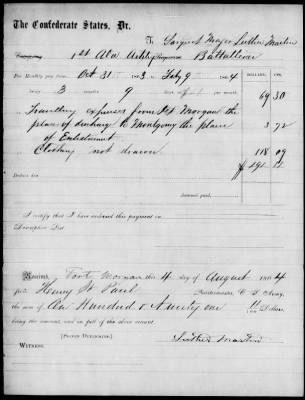 The Confederate States, Dr.
To Sargent Major Luther Martin
1st Ala Artilry Battallion
DOLLARS. CTS.
For Monthly pay from Oct 31st 1863, to Feby 9th 1864
being 3 9 days, at $ 69 30
Travelling expenses from Ft Morgan the
place of discharge to Montgomy the place 3 72
of Enlistment
Clothing not drawn 118 09
$ 191 11
Deduct for
Amount paid.
I certify that I have endorsed this payment on
Descriptive List.
Received, Fort Morgan this 4 day of August 1864
from Henry St Paul Quartermaster, C. S. Army,
the sum of One Hundred & Ninety one 11/100 Dollars,
being the amount, and in full of the above account.
[SIGNED DUPLICATES.]
Luther Martin
WITNESS.